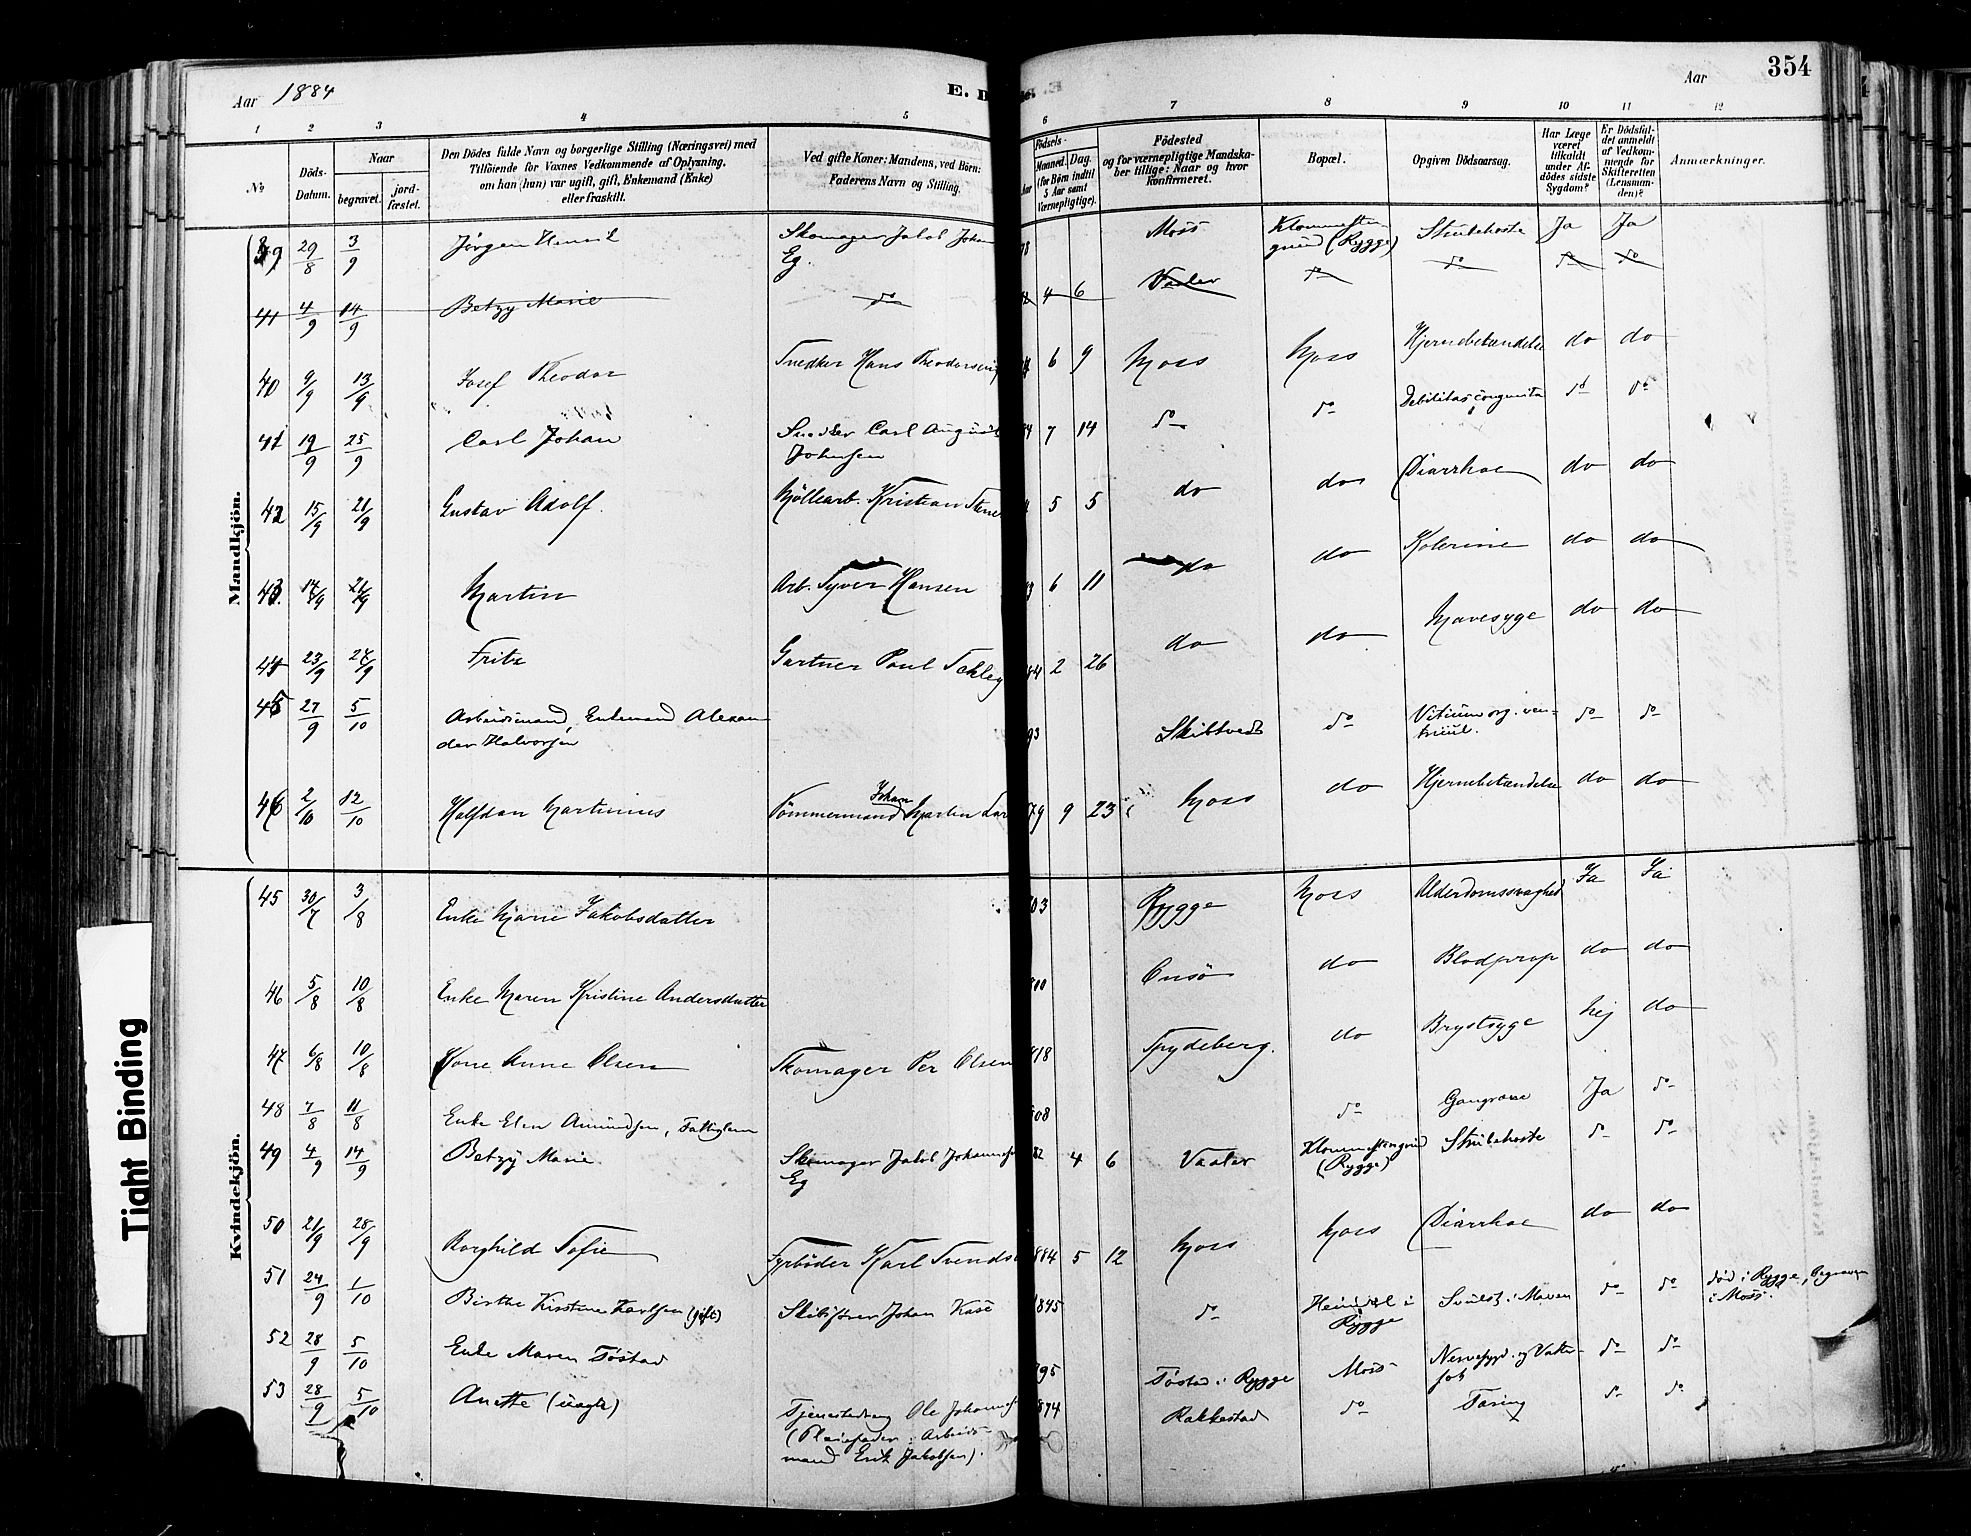 Aar 1884
E. D
E.
Aar
354
1 2 3 4 5 6 7 8 9 10 11 12
No
Döds-Datum.
Naar
begravet.
jord-fæstet.
Den Dödes fulde Navn og borgerlige Stilling (Næringsvei) med
Tilföiende for Voxnes Vedkommende af Oplysning,
om han (hun) var ugift, gift, Enkemand (Enke)
eller fraskilt.
Ved gifte Koner: Mandens, ved Börn:
Faderens Navn og Stilling.
Födsels-
Aar
Maaned. Dag.
(for Börn indtil
5 Aar samt
Værnepligtige).
Födested
og for værnepligtige Mandska-
ber tillige: Naar og hvor
konfirmeret.
Bopæl.
Opgiven Dödsaarsag.
Har Læge
været
tilkaldt
under Af-
dødes sidste
Sygdom?
Er Dödsfal-
det anmeldt
af Vedkom-
mende for
Skifteretten
(Lensman-
den)?
Anmærkninger.
Mandkjön.
39 29/8 3/9 Jørgen Henrik Skomager Jakob Johan 78 Moss Ja Ja
Eg. (Rygge) Strubehoste
41 4/9 14/9 Betzy Marie do 4 6 Vaaler do do do do
40 9/9 13/9 Josef Theodor Snedker Hans Theodorsen 6 9 Moss Moss Hjernebetændelse do do
41 19/9 25/9 Carl Johan Snedker Carl August 84 7 14 do do Debilitas congenita do do
Johnsen
42 15/9 21/9 Gustav Adolf. Møllearb. Kristian 5 5 do do Diarrhoe do do
43. 17/9 21/9 Martin Arb. Syver Hansen 3 6 11 do do Kolerine do do
44 23/9 27/9 Fritz Gartner Poul 84 2 26 do do Mavesyge do do
45 27/9 5/10 Arbeidsmand, Enkemand Alexan 93 Skibtvedt do Vitium org. ven- do do
der Halvorsen tricul.
46 2/10 12/10 Halfdan Martinius Tømmermand Johan Martin Lar 79 9 23 Moss do Hjernebetændelse do do
Kvindekjön.
45 30/7 3/8 Enke Marie Jakobsdatter 03 Rygge Moss Alderdomssvaghed Ja Ja
46 5/8 10/8 Enke Maren Kristine Andersdatter 800 Onsø do Blodprop do do
47 6/8 10/8 Kone Anne Olsen Skomager Per Olsen 18 Spydeberg. do Brystsyge Nej do
48 7/8 11/8 Enke Elen Amundsen, Fattiglem 808 do Gangræne Ja do
49 4/9 14/9 Betzy Marie Skomager Jakob Johannes 82 4 6 Vaaler Strubehoste do do
Eg (Rygge)
50 21/9 28/9 Borghild Sofie Fyrbøder Karl Svends 884 5 12 Moss Moss Diarrhoe do do
51 24/9 1/10 Birthe Kirstine Karlsen (gift) Skibsfører Johan 1845 do i Svulst i Maven do do død i Rygge, begraven
Rygge i Moss.
52 28/9 5/10 Enke Maren Tøstad 95 Tøstad i Rygge Moss do do
53 28/9 5/10 Anette (uægte) Tjenestedreng Ole Johannes 874 Rakkestad do Tæring do do
(Pleiefader: Arbeids-
mand Erik Jakobsen).
Tight Binding